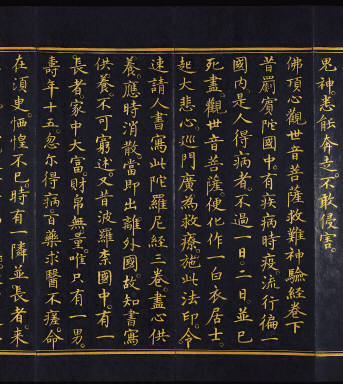 鬼神悉能令之不敢侵害
佛頂心觀世音菩薩救難神驗經卷下
昔罽賓陀國中有疾病時疫流行徧一
國內是人得病者不過一日二日並已
死盡觀世音菩薩便化作一白衣居士
起大悲心巡門廣為救療施此法印令
速請人書寫此陀羅尼經三卷盡心供
養應時消散當即出離外國故知書寫
供養不可窮述又昔波羅柰國中有一
長者家中大富財帛無量唯只有一男
壽年十五忽尔得病百藥求醫不瘥命
在須更恓惶不已時有一隣並長者來